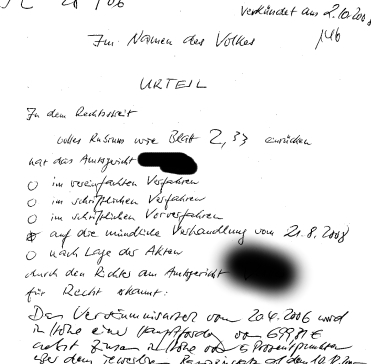 C 28/06
verkündet am 2.10.2008
Im Namen des Volkes
URTEIL
In dem Rechtsstreit
volles Rubrum wie Blatt 2, 33 einrücken
hat das Amtsgericht
O im vereinfachten Verfahren
O im schriftlichen Verfahren
O im schriftlichen Vorverfahren
auf die mündliche Verhandlung vom 21.8.2008
O nach Lage der Akten
durch den Richter am Amtsgericht
für Recht erkannt:
Das Versäumnisurteil vom 20.4.2006 wird
in Höhe einer Hauptforder von 699,81 €
nebst Zinsen in Höhe von 5 Prozentpunkten
über dem jeweiligen Basiszinssatz